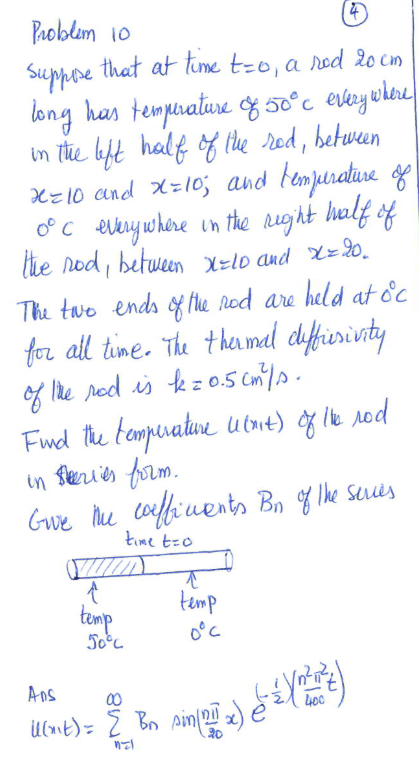 ④
Problem 10
Suppose that at time t=0, a rod 20 cm
long has temperature of 50°C everywhere
in the left half of the rod, between
x=10 and x=10; and temperature of
0°C everywhere in the right half of
the rod, between x=10 and x=20.
The two ends of the rod are held at 0°C
for all time. The thermal diffusivity
of the rod is k=0.5 cm²/s.
Find the temperature u(x,t) of the rod
in series form.
Give the coefficients Bn of the series
time t=0
temp
50°C
temp
0°C
Ans
u(x,t) = ∑_{n=1}^{∞} Bn sin(nπ/20 x) e^{(-1/2)(n²π²/400 t)}